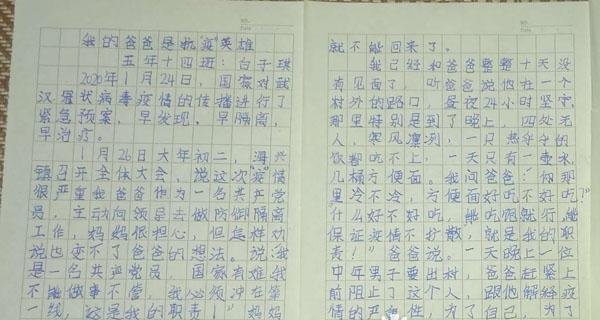 我的爸爸是抗"疫"英雄
五年十四班:白子琪
2020年1月24日,国家对武
汉冠状病毒疫情的传播进行了
紧急预案,早发现,早隔离,
早治疗。
1月26日大年初二,海兴
镇召开全体大会,说这次疫情
很严重我爸爸作为一名共产党
员,主动向领导去做防御隔离
工作,妈妈很担心,但怎样劝
说也变不了爸爸的想法。说:我
是一名共产党员,国家有难我
不能做事不管,我必须冲在第
一线,这是我的职责!"妈妈
就不能回来了。
我已经和爸爸整整十天没
有见面了,听爸爸说他在一个
村外的路口,昼夜24小时坚守,
那里特别是到了晚上,四处无
人,寒风凛冽,一只热乎乎的
饭都吃不上,一天只有一壶水,
几桶方便面。我问爸爸:"你那
里冷不冷,方便面好吃不好吃?"
什么好不好吃,能吃饱就行,能
保证疫情不扩散,就是我的职
责!"爸爸说。"一天晚上一位
中年男子要出村,爸爸赶紧上
前阻止了这个人,跟他解释疫
情的严重性,为了自己,为了